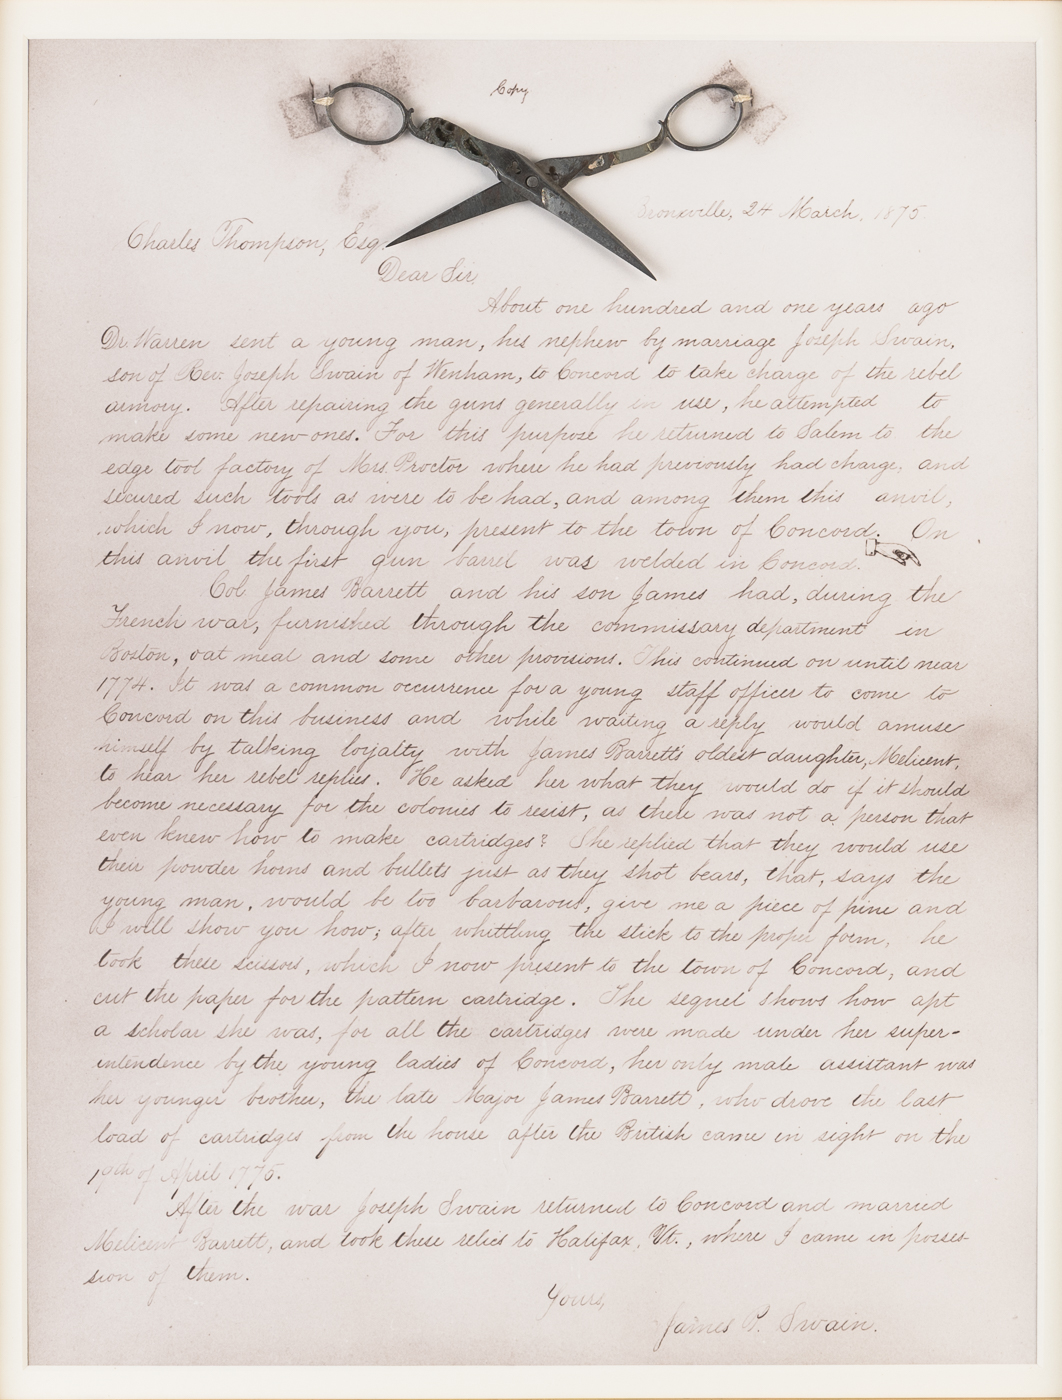 Copy
Bronxville, 24 March, 1875.
Charles Thompson, Esq.
Dear Sir,
About one hundred and one years ago
Dr. Warren sent a young man, his nephew by marriage Joseph Swain,
son of Rev. Joseph Swain of Wenham, to Concord to take charge of the rebel
armory. After repairing the guns generally in use, he attempted to
make some new ones. For this purpose he returned to Salem to the
edge tool factory of Mrs. Proctor where he had previously had charge, and
secured such tools as were to be had, and among them this anvil,
which I now, through you, present to the town of Concord. On
this anvil the first gun barrel was welded in Concord.
Col. James Barrett and his son James had, during the
French war, furnished through the commissary department in
Boston, oat meal and some other provisions. This continued on until near
1774. It was a common occurrence for a young staff officer to come to
Concord on this business and while waiting a reply would amuse
himself by talking loyalty with James Barrett's oldest daughter, Melicent,
to hear her rebel replies. He asked her what they would do if it should
become necessary for the colonies to resist, as there was not a person that
even knew how to make cartridges? She replied that they would use
their powder horns and bullets just as they shot bears, that, says the
young man, would be too barbarous, give me a piece of pine and
I will show you how; after whittling the stick to the proper form, he
took these scissors, which I now present to the town of Concord, and
cut the paper for the pattern cartridge. The sequel shows how apt
a scholar she was, for all the cartridges were made under her super-
intendence by the young ladies of Concord, her only male assistant was
her younger brother, the late Major James Barrett, who drove the last
load of cartridges from the house after the British came in sight on the
19th of April 1775.
After the war Joseph Swain returned to Concord and married
Melicent Barrett, and took these relics to Halifax, Vt., where I came in posses-
sion of them.
Yours,
James P. Swain.